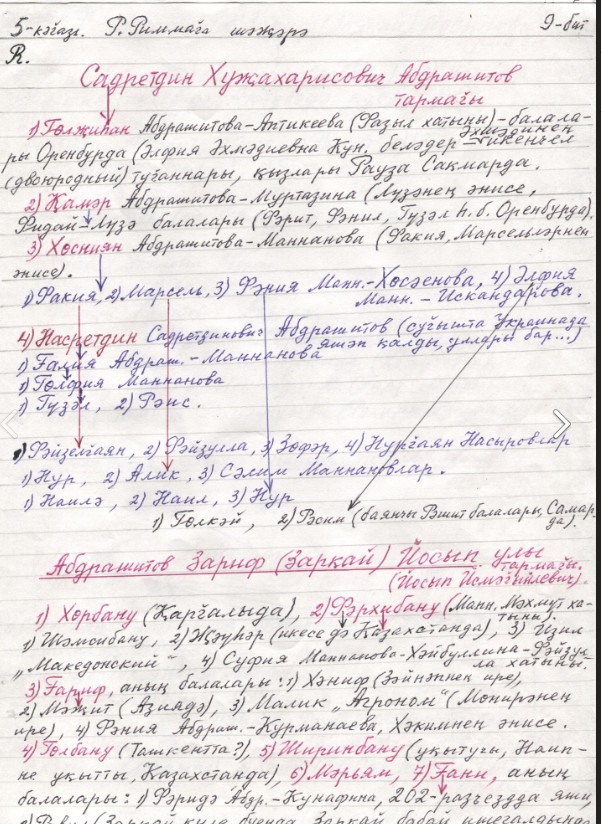 5-кәгазь. Р. Риммага шәҗәрә 9-бит
R.
Садретдин Хуҗахарисович Абдрашитов
тармағы
1) Гөлҗиһан Абдрашитова-Аптикеева (Фазыл хатыны)-балала-
ры Оренбурда (Әлфия Әхмәдиевна Кун. беләдер - Әхмәдинең икенъел
(двоюродный) туғаннары, қызлары Рауза Сақмарда.
2) Қамәр Абдрашитова-Муртазина (Лузәнең әнисе,
Фидай-Лузә балалары (Фәрит, Фәнил, Гүзәл һ.б. Оренбурда).
3) Хөсниян Абдрашитова-Маннанова (Ракия, Марсельләрнең
әнисе).
1) Ракия, 2) Марсель, 3) Фәния Манн.-Хөсәенова, 4) Әлфия
Манн.-Искандарова.
4) Насретдин Садретдинович Абдрашитов (суғышта Украинада
яшәп қалды, уллары бар...)
1) Ғалия Абдраш.-Маннанова
1) Гөлфия Маннанова
1) Гүзәл, 2) Рәис.
1) Фәйзелгаян, 2) Фәйзулла, 3) Зөфәр, 4) Нурғаян Насыровлар
1) Нур, 2) Алик, 3) Сәлим Маннановлар.
1) Наилә, 2) Наил, 3) Нур
1) Гөлкәй, 2) Рәсим (баянчы Рәшит балалары, Самар-
да).
Абдрашитов Зариф (Заркай) Йосып улы
тармағы.
(Йосып Исмәгыйлевич).
1) Хөрбану (Қарғалыда), 2) Фәрхибану (Манн. Мәхмүт ха-
тыны).
1) Шәмсибану, 2) Җәүһәр (икесе дә Казахстанда), 3) Изил
„Македонский“, 4) Суфия Маннанова-Хәйбуллина-Фәйзул-
ла хатыны.
3) Ғариф, аның балалары: 1) Хәниф (Зәйнәпнең ире),
2) Мәҗит (Азиядә), 3) Малик „Агроном“ (Мөнирәнең
ире), 4) Рәния Абдраш.-Курманаева, Хәкимнең әнисе.
4) Гөлбану (Ташкентта?), 5) Ширинбану (уқытучы, Наип-
не уқытты, Казахстанда), 6) Мәрьям, 7) Ғани, аның
балалары: 1) Фәридә Абдр.-Кунафина, 202-разъездда яши,